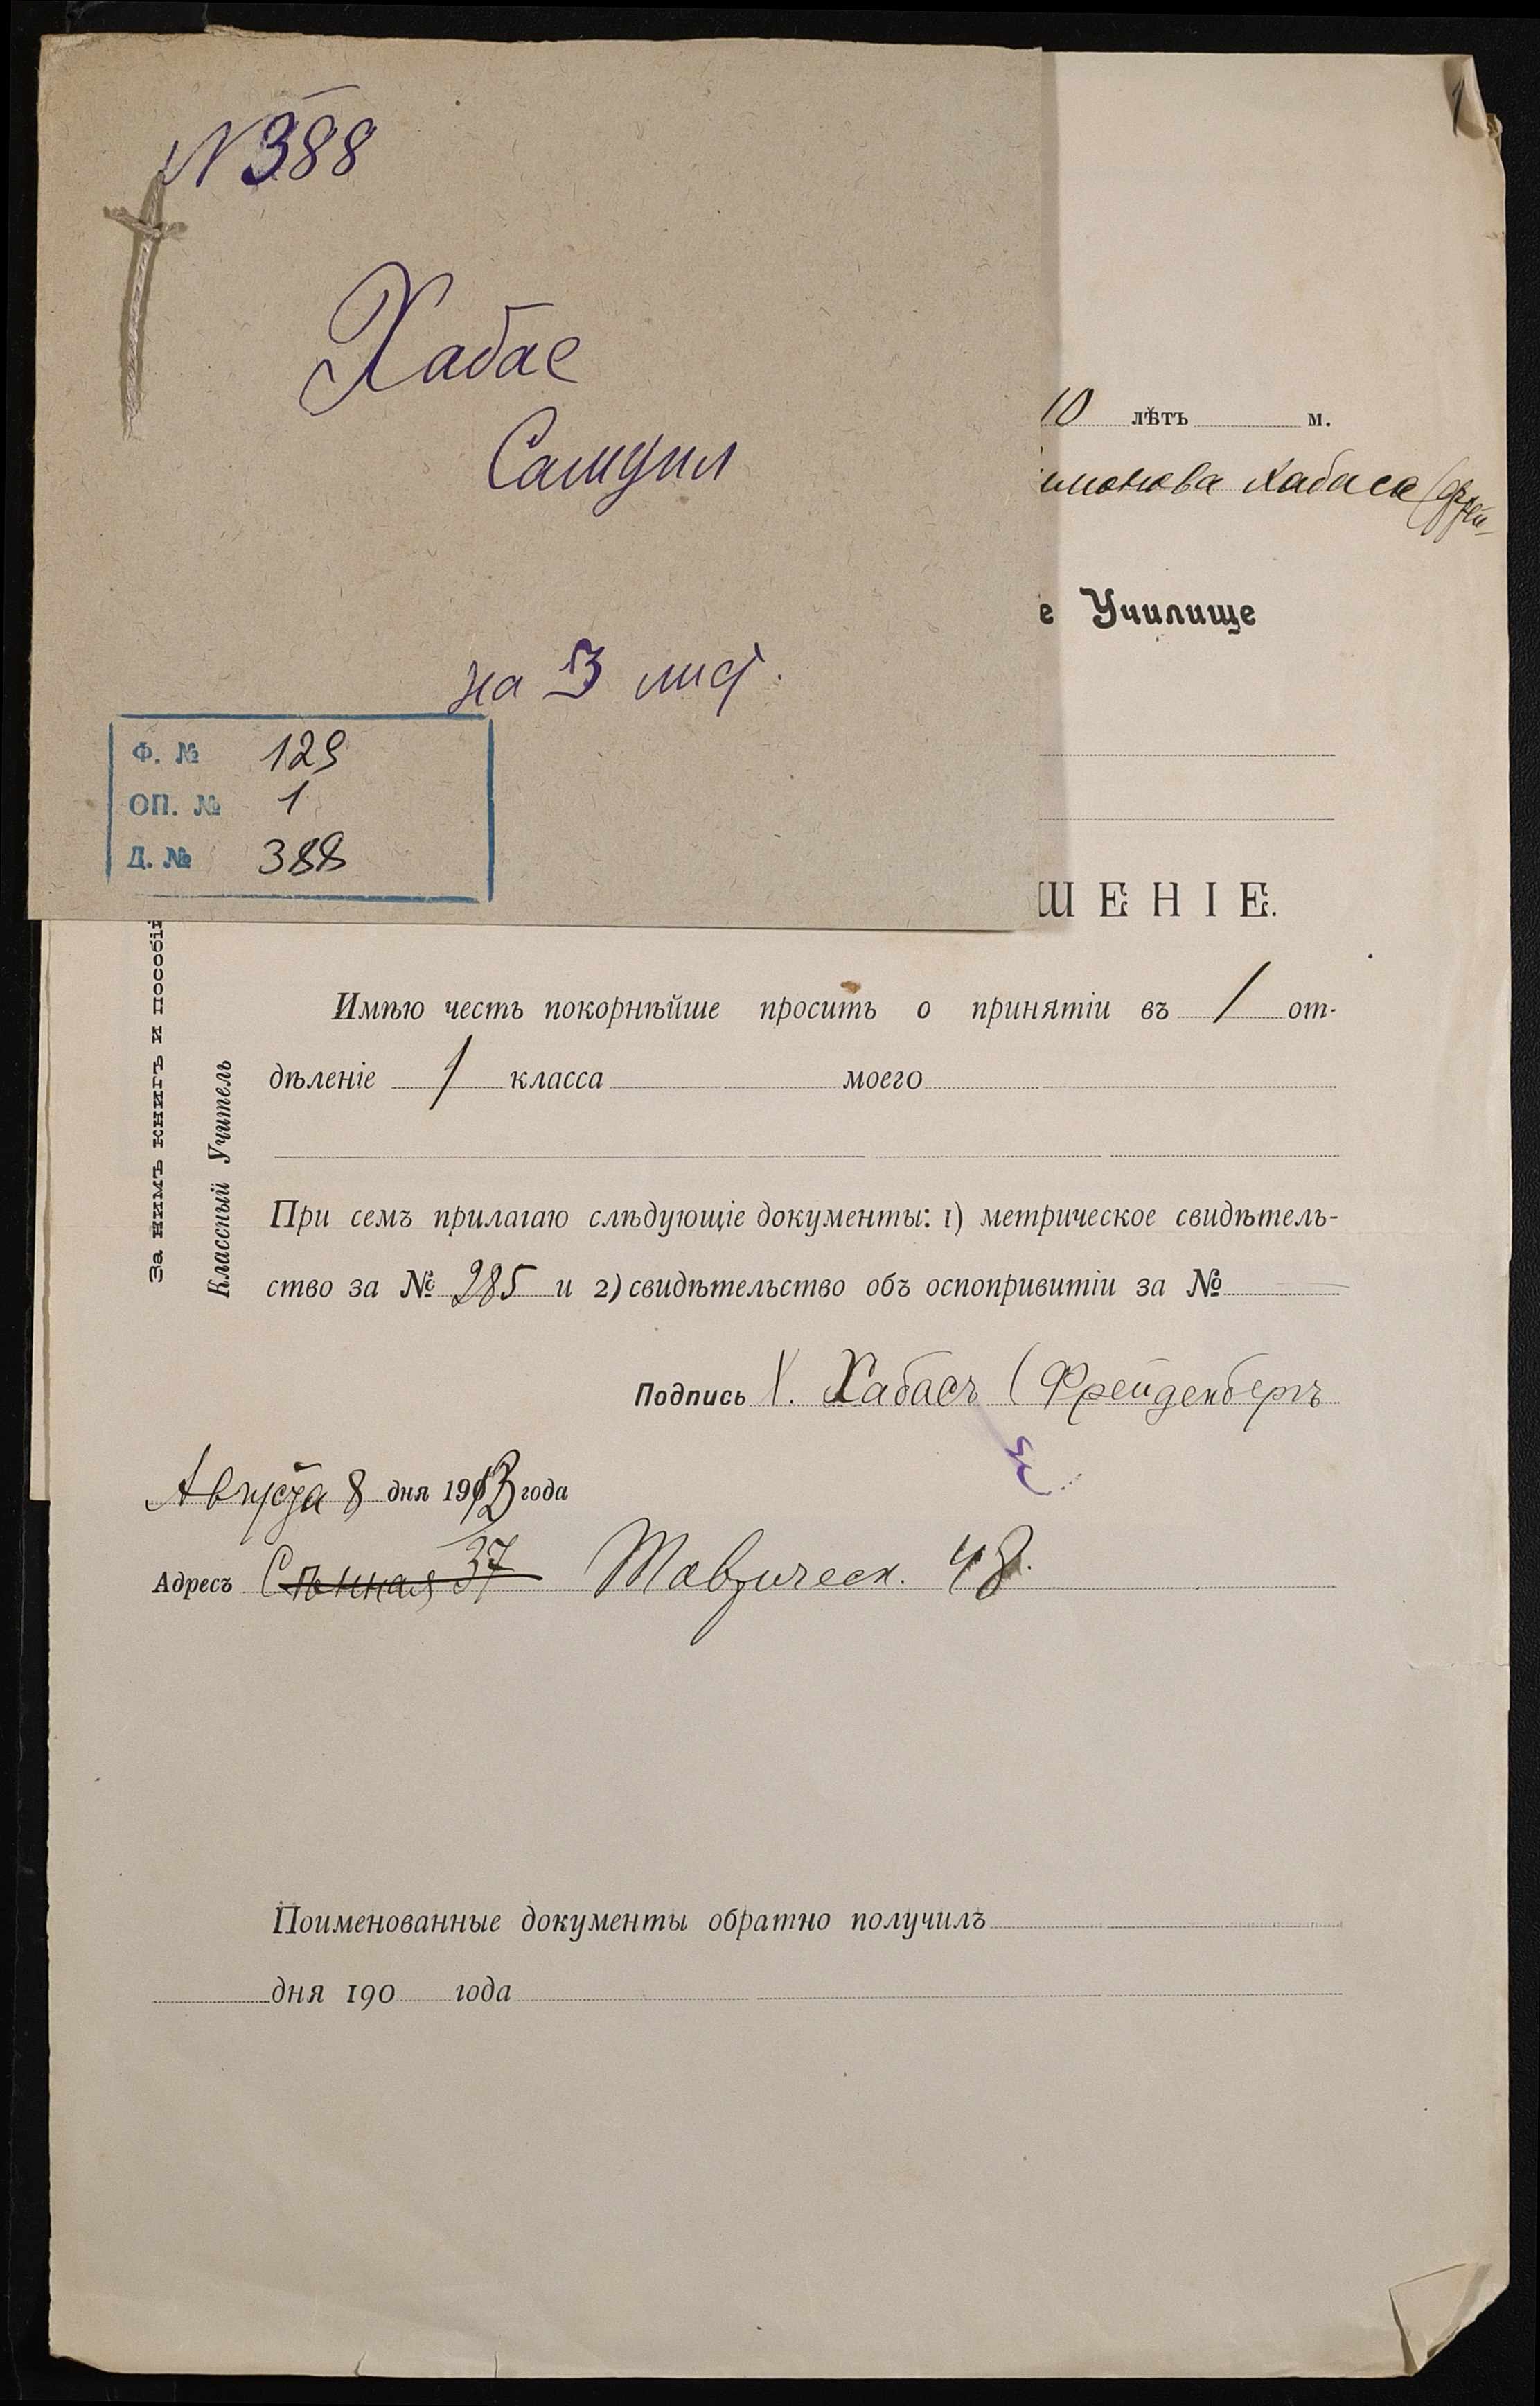 N 388
Хабас
Самуил
на 3 лист.
Ф. № 129
ОП. № 1
Д. № 388
1
10 лѣтъ м.
имонова Хабаса (Фрей-
е Училище
ШЕНІЕ.
За нимъ книгъ и пособій
Классный Учитель
Имѣю честь покорнѣйше просить о принятіи въ 1 от-
дѣленіе 1 класса моего
При семъ прилагаю слѣдующіе документы: 1) метрическое свидѣтель-
ство за № 285 и 2) свидѣтельство объ оспопривитіи за №
Подпись Х. Хабасъ (Фрейденбергъ
Августа 8 дня 1913 года
Адресъ Сѣнная 37 Таврическ. 48.
Поименованные документы обратно получилъ
дня 190 года